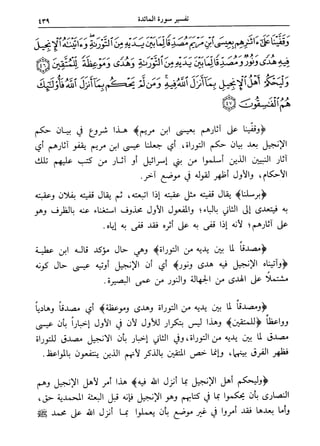 تفسير سورة المائدة ٤٣٩
وَقَفَّيْنَا عَلَىٰ آثَارِهِم بِعِيسَى ابْنِ مَرْيَمَ مُصَدِّقًا لِّمَا بَيْنَ يَدَيْهِ مِنَ التَّوْرَاةِ وَآتَيْنَاهُ الْإِنجِيلَ
فِيهِ هُدًى وَنُورٌ وَمُصَدِّقًا لِّمَا بَيْنَ يَدَيْهِ مِنَ التَّوْرَاةِ وَهُدًى وَمَوْعِظَةً لِّلْمُتَّقِينَ ٤٦
وَلْيَحْكُمْ أَهْلُ الْإِنجِيلِ بِمَا أَنزَلَ اللَّهُ فِيهِ وَمَن لَّمْ يَحْكُم بِمَا أَنزَلَ اللَّهُ فَأُولَٰئِكَ
هُمُ الْفَاسِقُونَ ٤٧
﴿وقفّينا على آثارهم بعيسى ابن مريم﴾ هذا شروع في بيان حكم
الإنجيل بعد بيان حكم التوراة، أي جعلنا عيسى ابن مريم يقفو آثارهم أي
آثار النبيين الذين أسلموا من بني إسرائيل أو آثار من كتب عليهم تلك
الأحكام، والأول أظهر لقوله في موضع آخر.
﴿برسلنا﴾ يقال قفيته مثل عقبته إذا اتبعته، ثم يقال قفيته بفلان وعقبته
به فيتعدى إلى الثاني بالباء، والمفعول الأول محذوف استغناء عنه بالظرف وهو
على آثارهم، لأنه إذا قفى به على أثره فقد قفى به إياه.
﴿مصدقاً لما بين يديه من التوراة﴾ وهي حال مؤكد قاله ابن عطية
﴿وآتيناه الإنجيل فيه هدى ونور﴾ أي أن الإنجيل أوتيه عيسى حال كونه
مشتملاً على الهدى من الجهالة والنور من عمى البصيرة.
﴿ومصدقاً لما بين يديه من التوراة وهدى وموعظة﴾ أي مصدقاً وهادياً
وواعظاً ﴿للمتقين﴾ وهذا ليس بتكرار للأول لأن في الأول إخباراً بأن عيسى
مصدق لما بين يديه من التوراة، وفي الثاني إخبار بأن الانجيل مصدق للتوراة
فظهر الفرق بينهما، وإنما خص المتقين بالذكر لأنهم الذين ينتفعون بالمواعظ.
﴿وليحكم أهل الإنجيل بما أنزل الله فيه﴾ هذا أمر لأهل الإنجيل وهم
النصارى بأن يحكموا بما في كتابهم وهو الإنجيل فإنه قبل البعثة المحمدية حق،
وأما بعدها فقد أمروا في غير موضع بأن يعملوا بما أنزل الله على محمد ﷺ